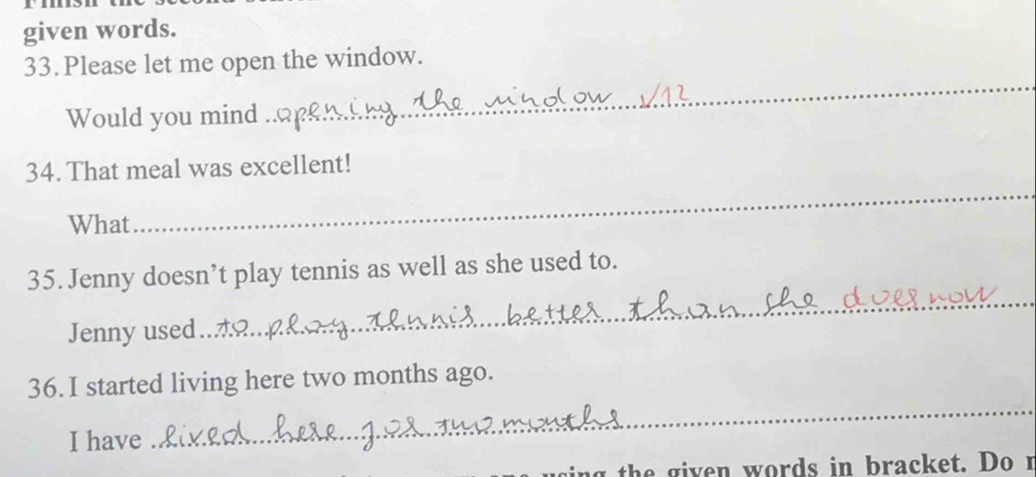 given words.
33. Please let me open the window.
Would you mind opening the window
34. That meal was excellent!
What
35. Jenny doesn't play tennis as well as she used to.
Jenny used to play tennis better than she does now
36. I started living here two months ago.
I have lived here for two months
using the given words in bracket. Do